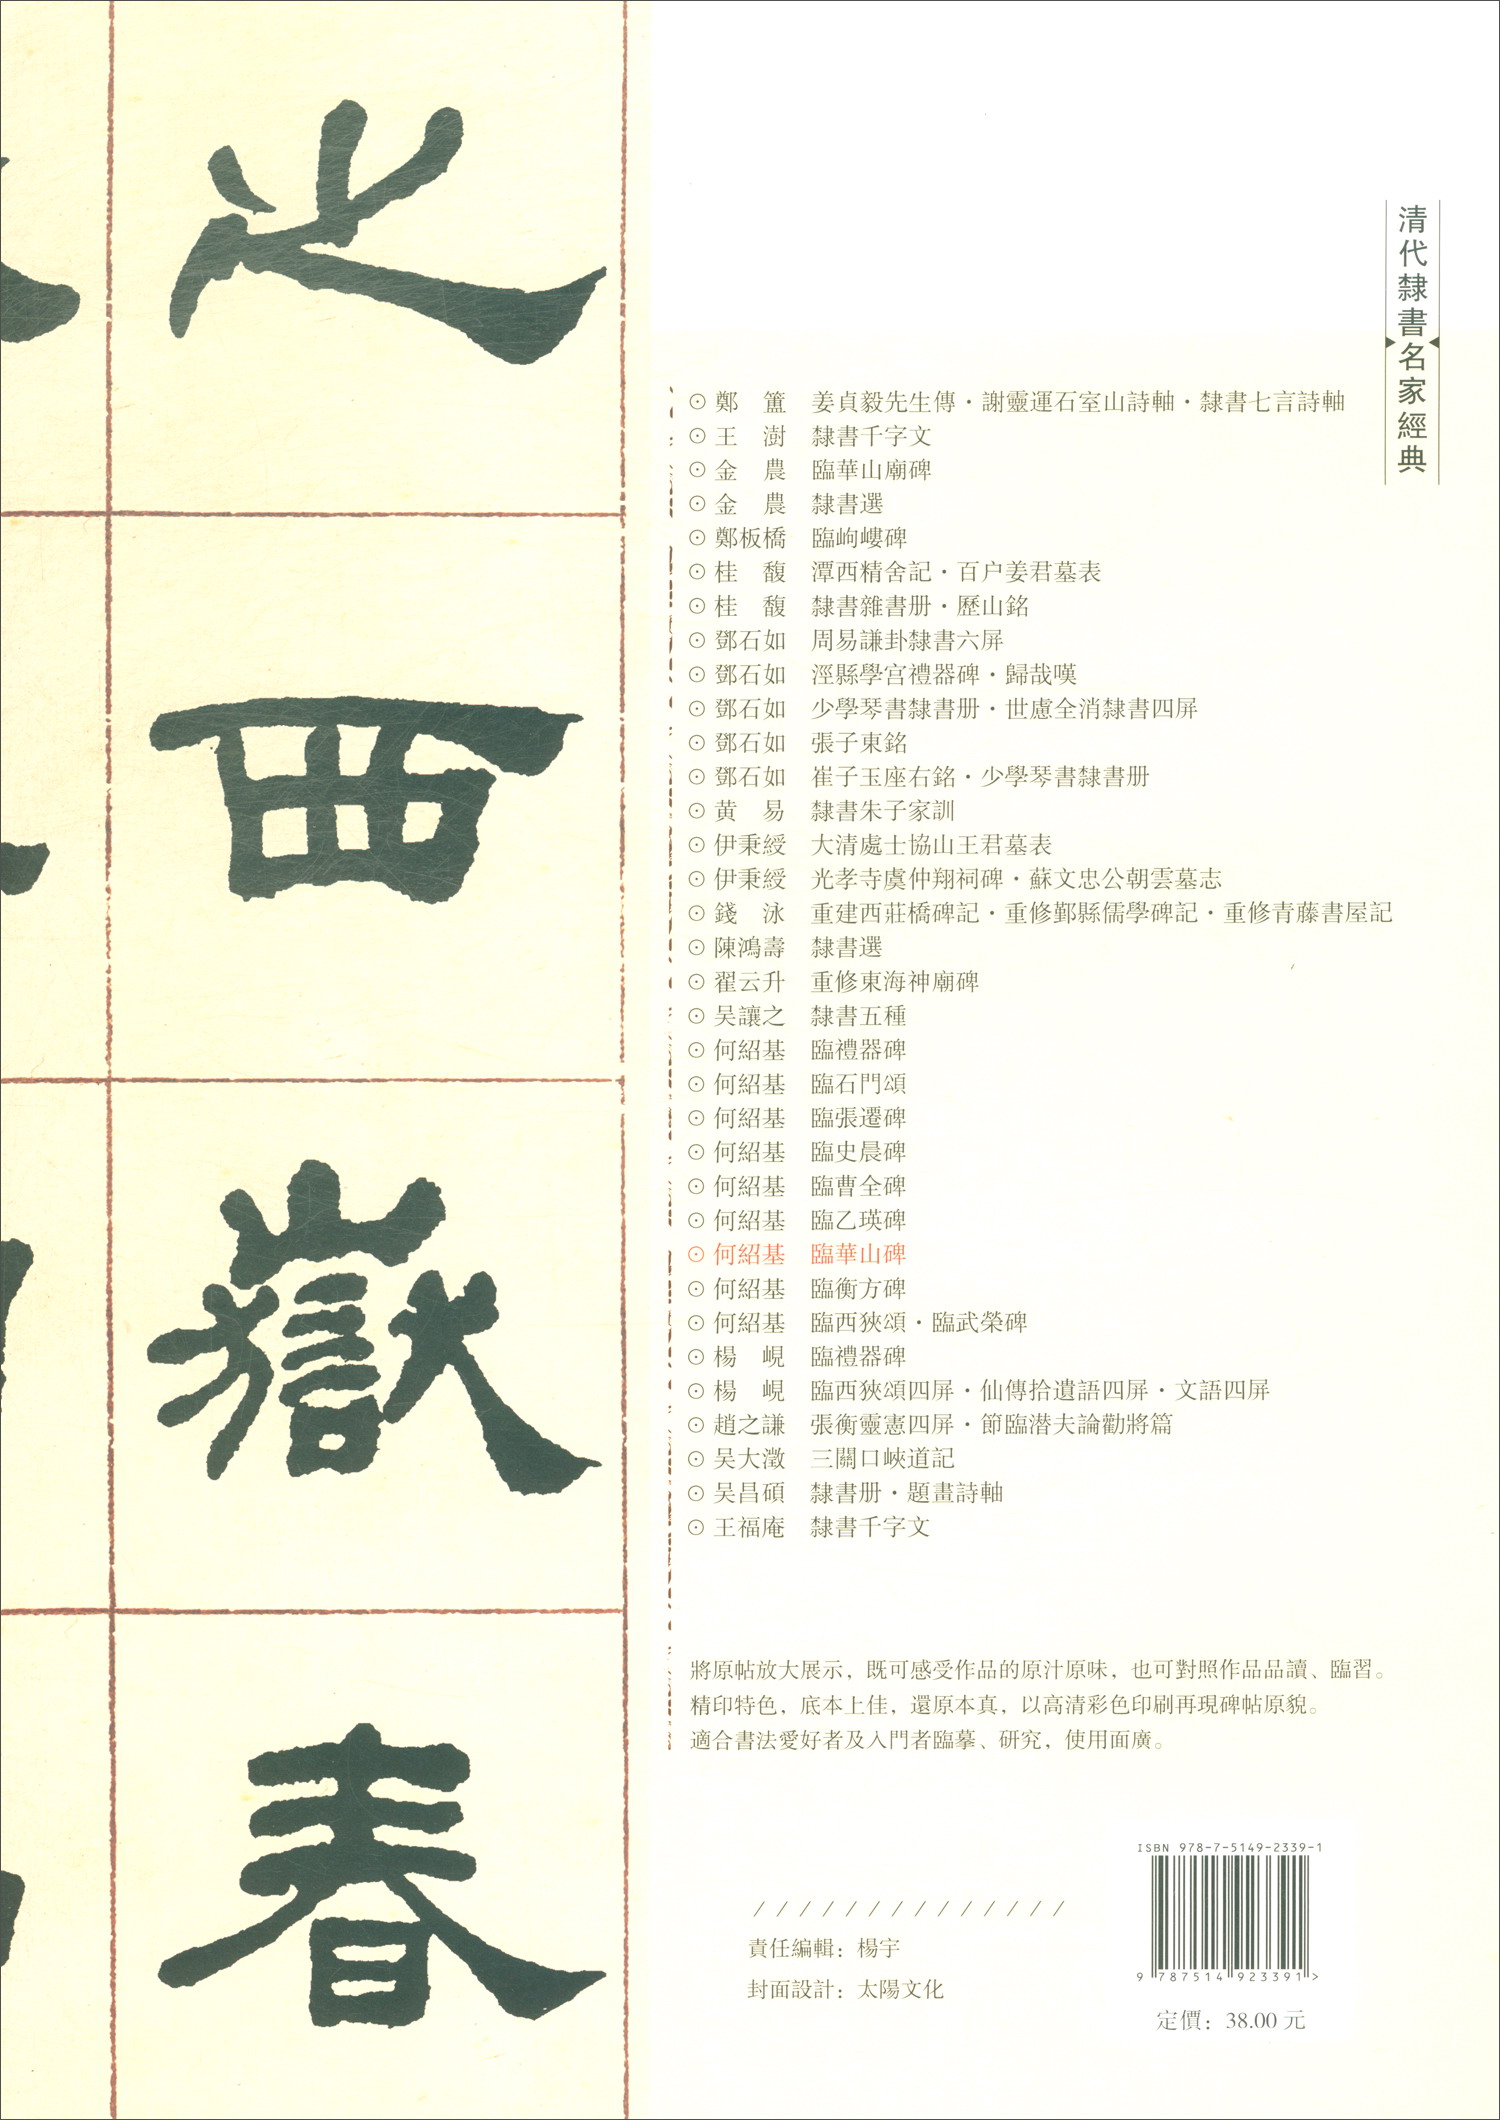 之
西
嶽
春
清代隸書名家經典
⊙ 鄭　簠　姜貞毅先生傳・謝靈運石室山詩軸・隸書七言詩軸
⊙ 王　澍　隸書千字文
⊙ 金　農　臨華山廟碑
⊙ 金　農　隸書選
⊙ 鄭板橋　臨岣嶁碑
⊙ 桂　馥　潭西精舍記・百户姜君墓表
⊙ 桂　馥　隸書雜書册・歷山銘
⊙ 鄧石如　周易謙卦隸書六屏
⊙ 鄧石如　涇縣學宫禮器碑・歸哉嘆
⊙ 鄧石如　少學琴書隸書册・世慮全消隸書四屏
⊙ 鄧石如　張子東銘
⊙ 鄧石如　崔子玉座右銘・少學琴書隸書册
⊙ 黄　易　隸書朱子家訓
⊙ 伊秉綬　大清處士協山王君墓表
⊙ 伊秉綬　光孝寺虞仲翔祠碑・蘇文忠公朝雲墓志
⊙ 錢　泳　重建西莊橋碑記・重修鄞縣儒學碑記・重修青藤書屋記
⊙ 陳鴻壽　隸書選
⊙ 翟云升　重修東海神廟碑
⊙ 吴讓之　隸書五種
⊙ 何紹基　臨禮器碑
⊙ 何紹基　臨石門頌
⊙ 何紹基　臨張遷碑
⊙ 何紹基　臨史晨碑
⊙ 何紹基　臨曹全碑
⊙ 何紹基　臨乙瑛碑
⊙ 何紹基　臨華山碑
⊙ 何紹基　臨衡方碑
⊙ 何紹基　臨西狹頌・臨武榮碑
⊙ 楊　峴　臨禮器碑
⊙ 楊　峴　臨西狹頌四屏・仙傳拾遺語四屏・文語四屏
⊙ 趙之謙　張衡靈憲四屏・節臨潜夫論勸將篇
⊙ 吴大澂　三關口峽道記
⊙ 吴昌碩　隸書册・題畫詩軸
⊙ 王福庵　隸書千字文
將原帖放大展示，既可感受作品的原汁原味，也可對照作品品讀、臨習。
精印特色，底本上佳，還原本真，以高清彩色印刷再現碑帖原貌。
適合書法愛好者及入門者臨摹、研究，使用面廣。
責任編輯：楊宇
封面設計：太陽文化
ISBN 978-7-5149-2339-1
9 787514 923391 >
定價：38.00 元